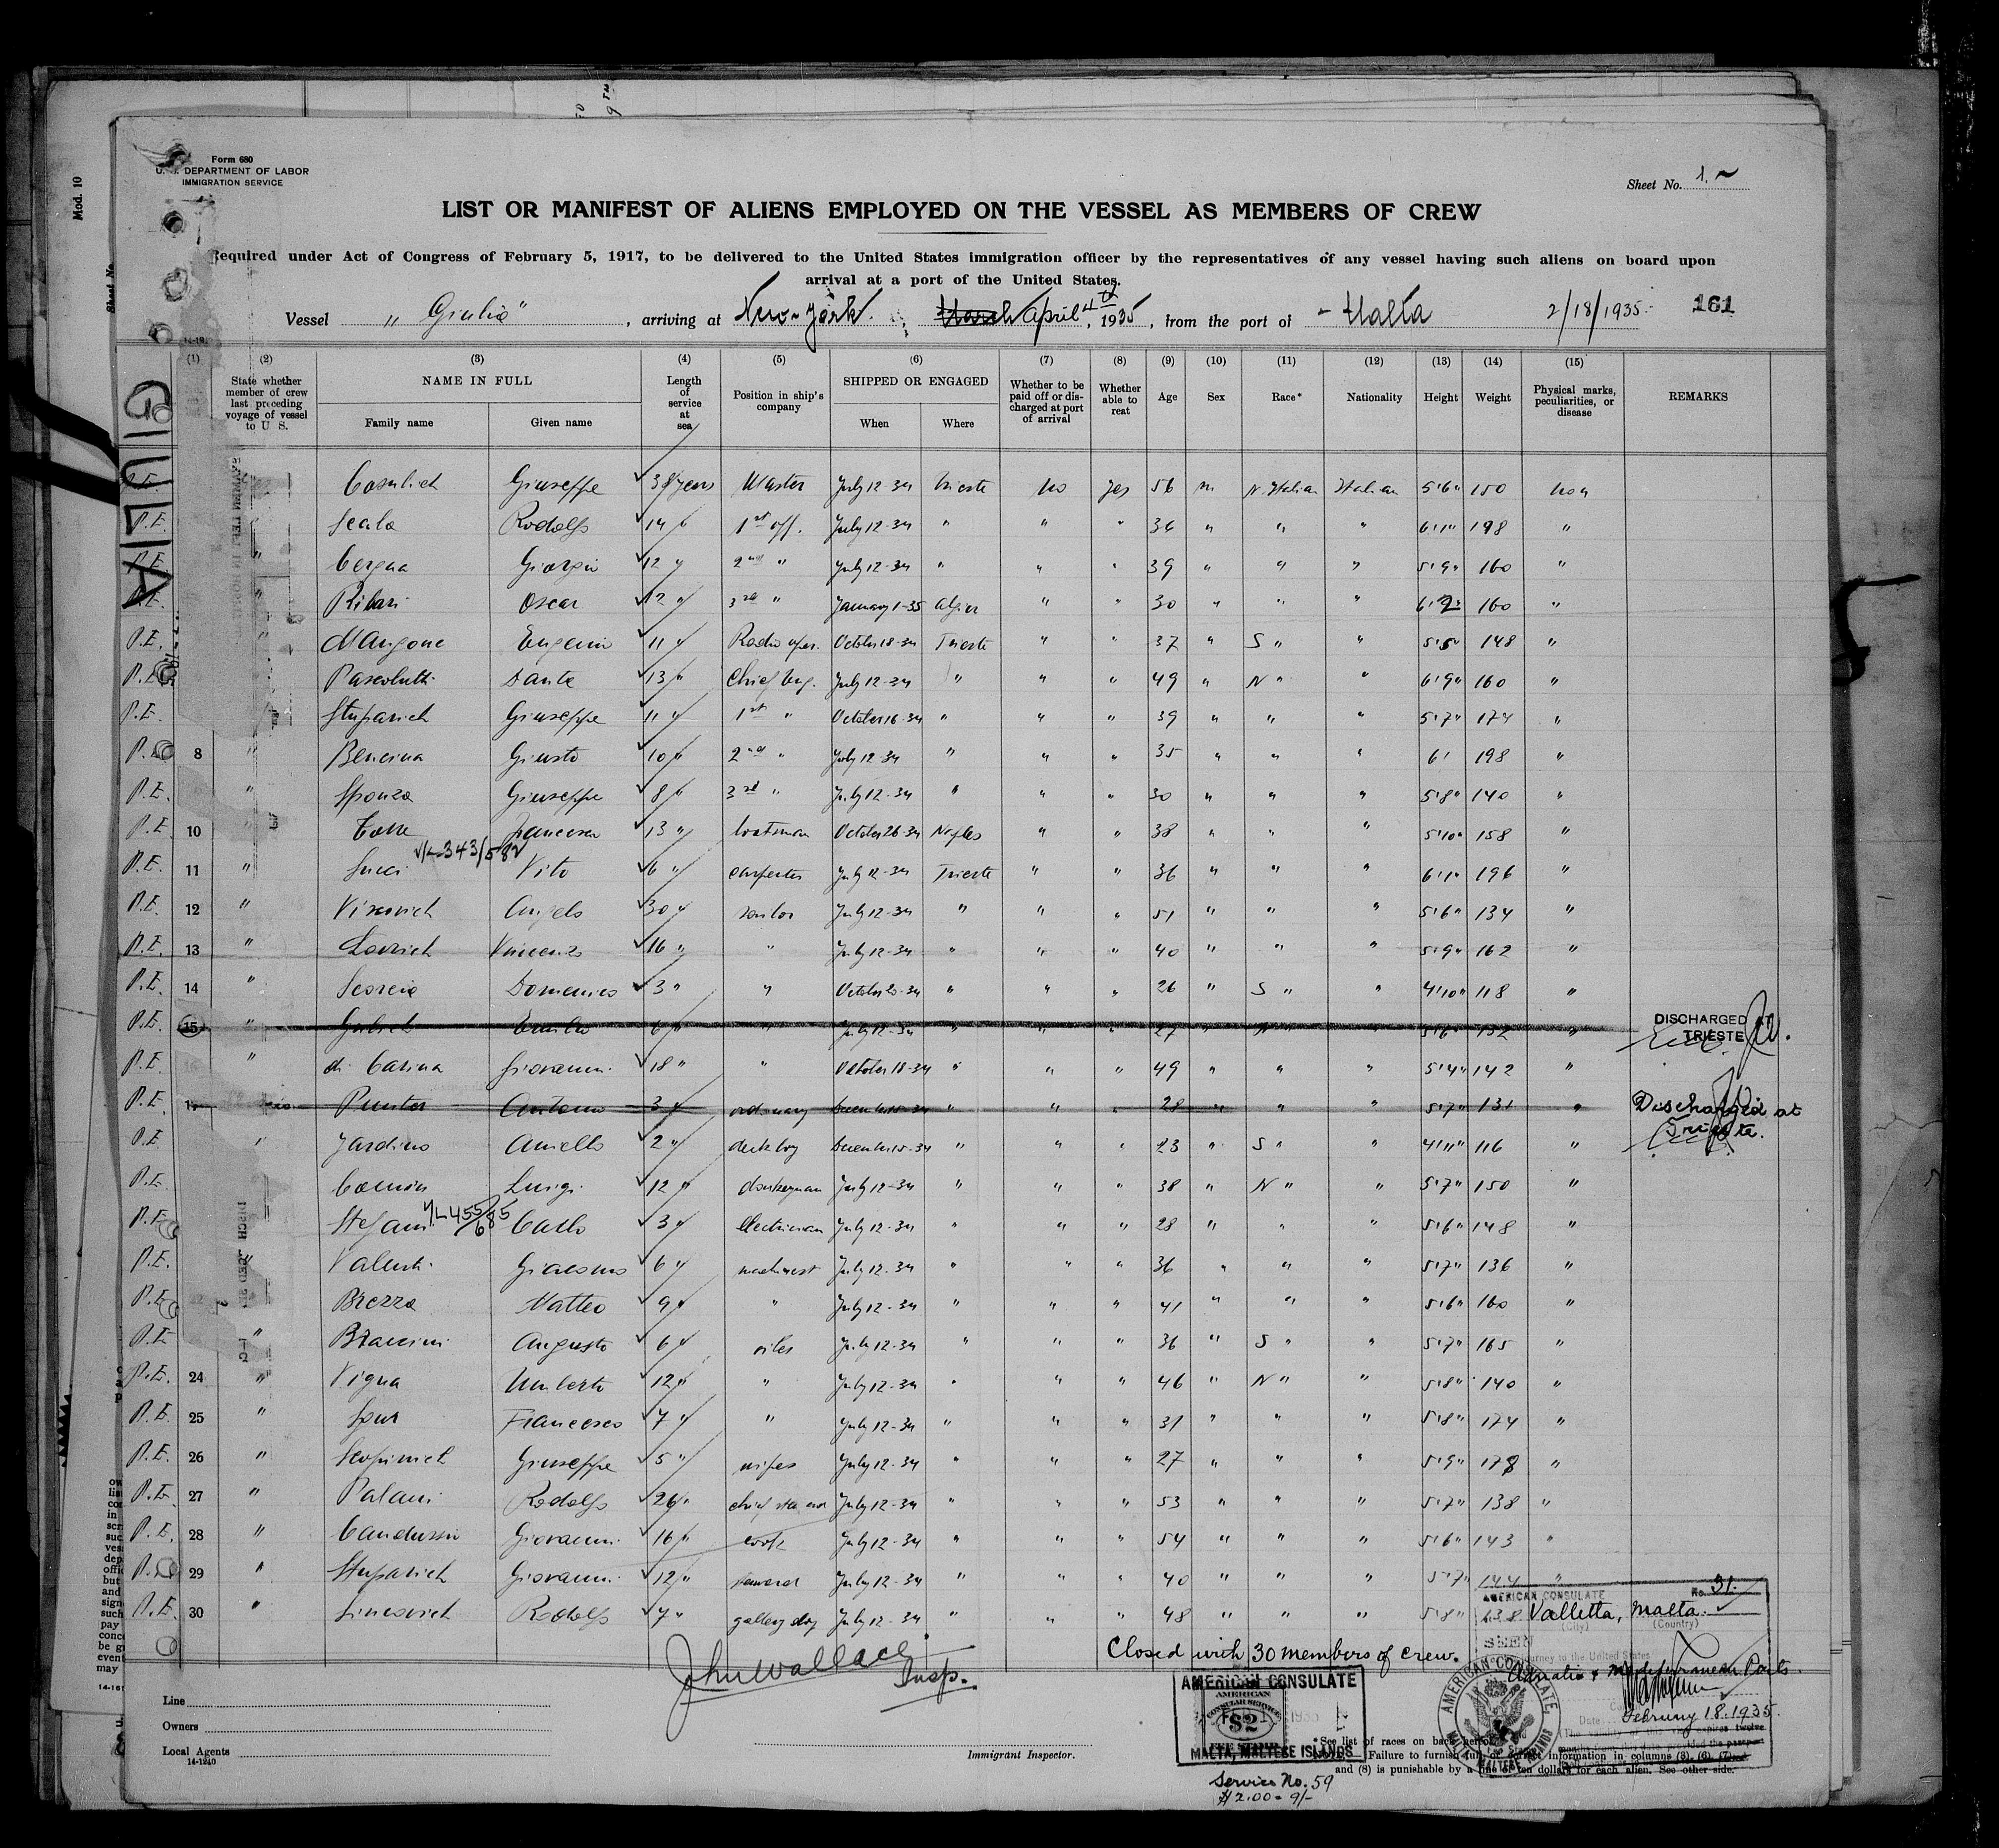 Mod. 10
Form 680
U. S. DEPARTMENT OF LABOR
IMMIGRATION SERVICE
Sheet No. 1.
LIST OR MANIFEST OF ALIENS EMPLOYED ON THE VESSEL AS MEMBERS OF CREW
Required under Act of Congress of February 5, 1917, to be delivered to the United States immigration officer by the representatives of any vessel having such aliens on board upon
arrival at a port of the United States.
Vessel "Giulia", arriving at New-York, March April 4th, 1935, from the port of Malta 2/18/1935 161
GIULIA
(1) (2) (3) (4) (5) (6) (7) (8) (9) (10) (11) (12) (13) (14) (15)
State whether member of crew last preceding voyage of vessel to U S. NAME IN FULL Family name Given name Length of service at sea Position in ship's company SHIPPED OR ENGAGED When Where Whether to be paid off or discharged at port of arrival Whether able to read Age Sex Race* Nationality Height Weight Physical marks, peculiarities, or disease REMARKS
P.E. Cosulich Giuseppe 38 years Master July 12-34 Trieste no yes 56 m N. Italian Italian 5'6" 150 non
P.E. Scala Rodolfo 14 " 1st off. July 12-34 " " " 36 " " " 6'1" 198 "
P.E. " Cergna Giorgio 12 " 2nd " July 12-34 " " " 39 " " " 5'9" 160 "
P.E. Ribari Oscar 12 " 3rd " January 1-35 Algier " " 30 " " " 6'2" 160 "
P.E. " Mangone Eugenio 11 " Radio oper. October 18-34 Trieste " " 37 " S " " 5'5" 148 "
P.E. Pascolutti Dante 13 " Chief Eng. July 12-34 " " " 49 " N " " 6'9" 160 "
P.E. Stuparich Giuseppe 11 " 1st " October 16-34 " " " 39 " " " 5'7" 174 "
P.E. 8 " Bencina Giusto 10 " 2nd " July 12-34 " " " 35 " " " 6' 198 "
P.E. " Sponza Giuseppe 8 " 3rd " July 12-34 " " " 30 " " " 5'8" 140 "
P.E. 10 Francesco 13 " boatsman October 26-34 Naples " " 38 " " " 5'10" 158 "
343/582
P.E. 11 " Succi Vito 6 " carpenter July 12-34 Trieste " " 36 " " " 6'1" 196 "
P.E. 12 " Viscovich Angelo 30 " sailor July 12-34 " " " 51 " " " 5'6" 134 "
P.E. 13 " Lovrich Vincenzo 16 " " July 12-34 " " " 40 " " " 5'9" 162 "
P.E. 14 " Scorcia Domenico 3 " " October 20-34 " " " 26 " S " " 4'10" 118 "
P.E. 15 " Emilio 6 " " July 12-34 " " " 27 " N " " 5'6" 132 " DISCHARGED TRIESTE
P.E. " di Carina Giovanni 18 " " October 18-34 " " " 49 " " " 5'4" 142 "
P.E. 17 Punter Antonio 3 " ordinary December 15-34 " " " 28 " " " 5'7" 131 " Discharged at Trieste.
P.E. " Jardino Aniello 2 " deck boy December 15-34 " " " 23 " S " " 4'11" 116 "
P.E. Comin Luigi 12 " donkeyman July 12-34 " " " 38 " N " " 5'7" 150 "
455/685
P.E. Stefani Carlo 3 " electrician July 12-34 " " " 28 " " " 5'6" 148 "
P.E. " Valenti Giacomo 6 " machinist July 12-34 " " " 36 " " " 5'7" 136 "
P.E. Brezza Matteo 9 " " July 12-34 " " " 41 " " " 5'6" 160 "
P.E. " Braccini Augusto 6 " oiler July 12-34 " " " 36 " S " " 5'7" 165 "
P.E. 24 " Vigna Umberto 12 " " July 12-34 " " " 46 " N " " 5'8" 140 "
P.E. 25 " Spur Francesco 7 " " July 12-34 " " " 31 " " " 5'8" 174 "
P.E. 26 " Scopinich Giuseppe 5 " wiper July 12-34 " " " 27 " " " 5'9" 178 "
P.E. 27 " Palani Rodolfo 26 " chief steward July 12-34 " " " 53 " " " 5'7" 138 "
P.E. 28 " Candussio Giovanni 16 " cook July 12-34 " " " 54 " " " 5'6" 143 "
P.E. 29 " Stuparich Giovanni 12 " steward July 12-34 " " " 40 " " " 5'7" 144 "
P.E. 30 " Sincovich Rodolfo 7 " galley boy July 12-34 " " " 48 " " " 5'8" 138
AMERICAN CONSULATE No. 31
Valletta, Malta.
(City) (Country)
SEEN
Closed with 30 members of crew.
Adriatic & Mediterranean Ports.
John Wallace
Insp.
February 18. 1935.
AMERICAN CONSULATE
AMERICAN CONSULAR SERVICE $2
MALTA, MALTESE ISLANDS
AMERICAN CONSULATE, MALTA MALTESE ISLANDS
Line
Owners
Local Agents
14-1240
Immigrant Inspector.
*See list of races on back hereof.
Failure to furnish full or correct information in columns (3), (6), (7),
and (8) is punishable by a fine of ten dollars for each alien. See other side.
Service No. 59
$2.00 = 9/-